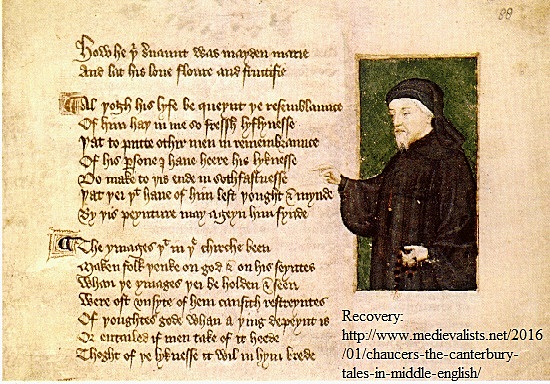 88
How he þͥ seruaunt was mayden marie
And lat his loue floure and fructifie
Al þogh his lyfe be queynt þe resemblaunce
Of him haþ in me so fressh lyflynesse
Þat to putte othir men in remembraunce
Of his ꝑsone I haue heere his lyknesse
Do make to þis ende in sothfastnesse
Þat þei þͭ haue of him lest þought & mynde
By þis peynture may ageyn him fynde
The ymages þͭ in þͤ chirche been
Maken folk þenke on god & on his seyntes
Whan þe ymages þei be holden & seen
Were oft vnsyte of hem causith restreyntes
Of þoughtes gode whan a þing depeynt is
Or entailed if men take of it heede
Thoght of þe lyknesse it wil in hym brede
Recovery:
http://www.medievalists.net/2016
/01/chaucers-the-canterbury-
tales-in-middle-english/